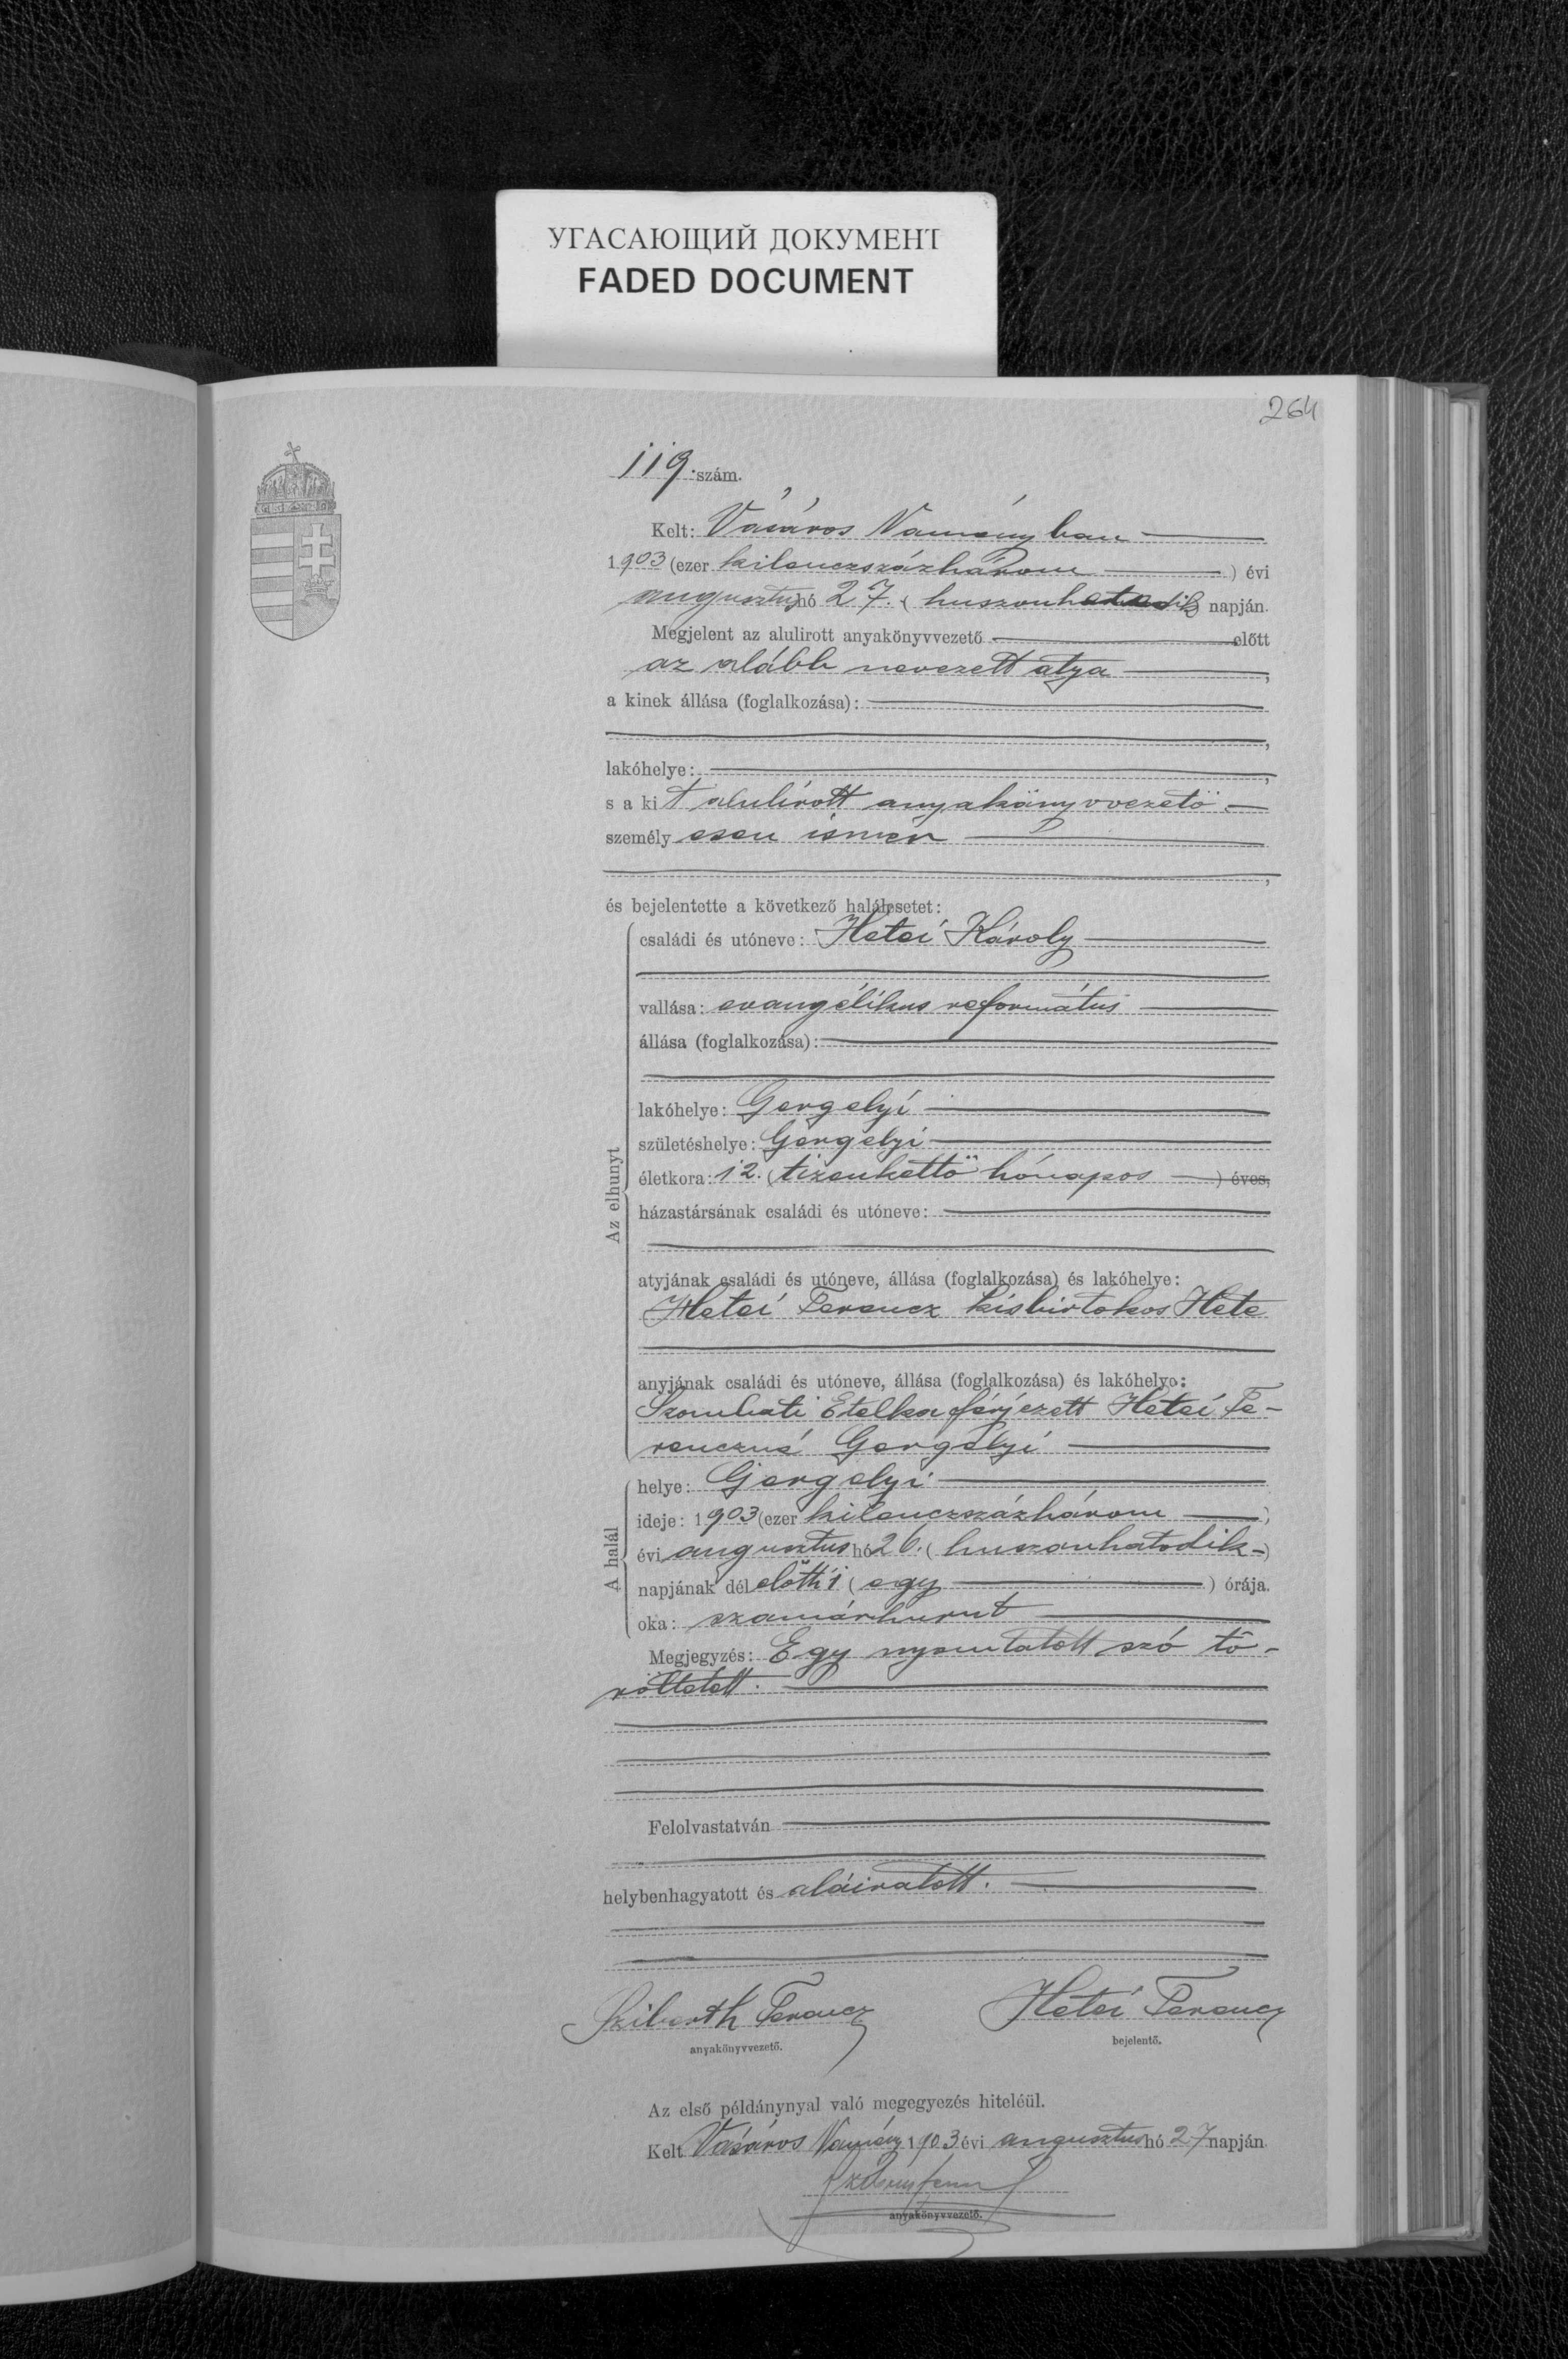 УГАСАЮЩИЙ ДОКУМЕНТ
FADED DOCUMENT
264
119. szám.
Kelt: Vásáros Namény ban
1903 (ezer kilenczszázhárom ) évi
augusztus hó 27. ( huszonhetedik ) napján.
Megjelent az alulirott anyakönyvvezető előtt
az alább nevezett atya ,
a kinek állása (foglalkozása):
,
lakóhelye: ,
s a kit alulírott anyakönyvvezető
személy esen ismer
,
és bejelentette a következő halálesetet:
Az elhunyt
családi és utóneve: Hetei Károly
vallása: evangélikus református
állása (foglalkozása):
lakóhelye: Gergelyi
születéshelye: Gergelyi
életkora: 12. (tizenkettő hónapos ) éves,
házastársának családi és utóneve:
atyjának családi és utóneve, állása (foglalkozása) és lakóhelye:
Hetei Ferencz kisbirtokos Hete
anyjának családi és utóneve, állása (foglalkozása) és lakóhelye:
Szombati Etelka férjezett Hetei Fe-
renczné Gergelyi
A halál
helye: Gergelyi
ideje: 1903 (ezer kilenczszázhárom )
évi augusztus hó 26. ( huszonhatodik )
napjának dél előtti 1 ( egy ) órája.
oka: szamárhurut
Megjegyzés: Egy nyomtatott szó tö-
röltetett.
Felolvastatván
helybenhagyatott és aláíratott.
Ferencz Hetei Ferencz
anyakönyvvezető. bejelentő.
Az első példánynyal való megegyezés hiteléül.
Kelt Vásáros Namény 1903 évi augusztus hó 27 napján
anyakönyvvezető.